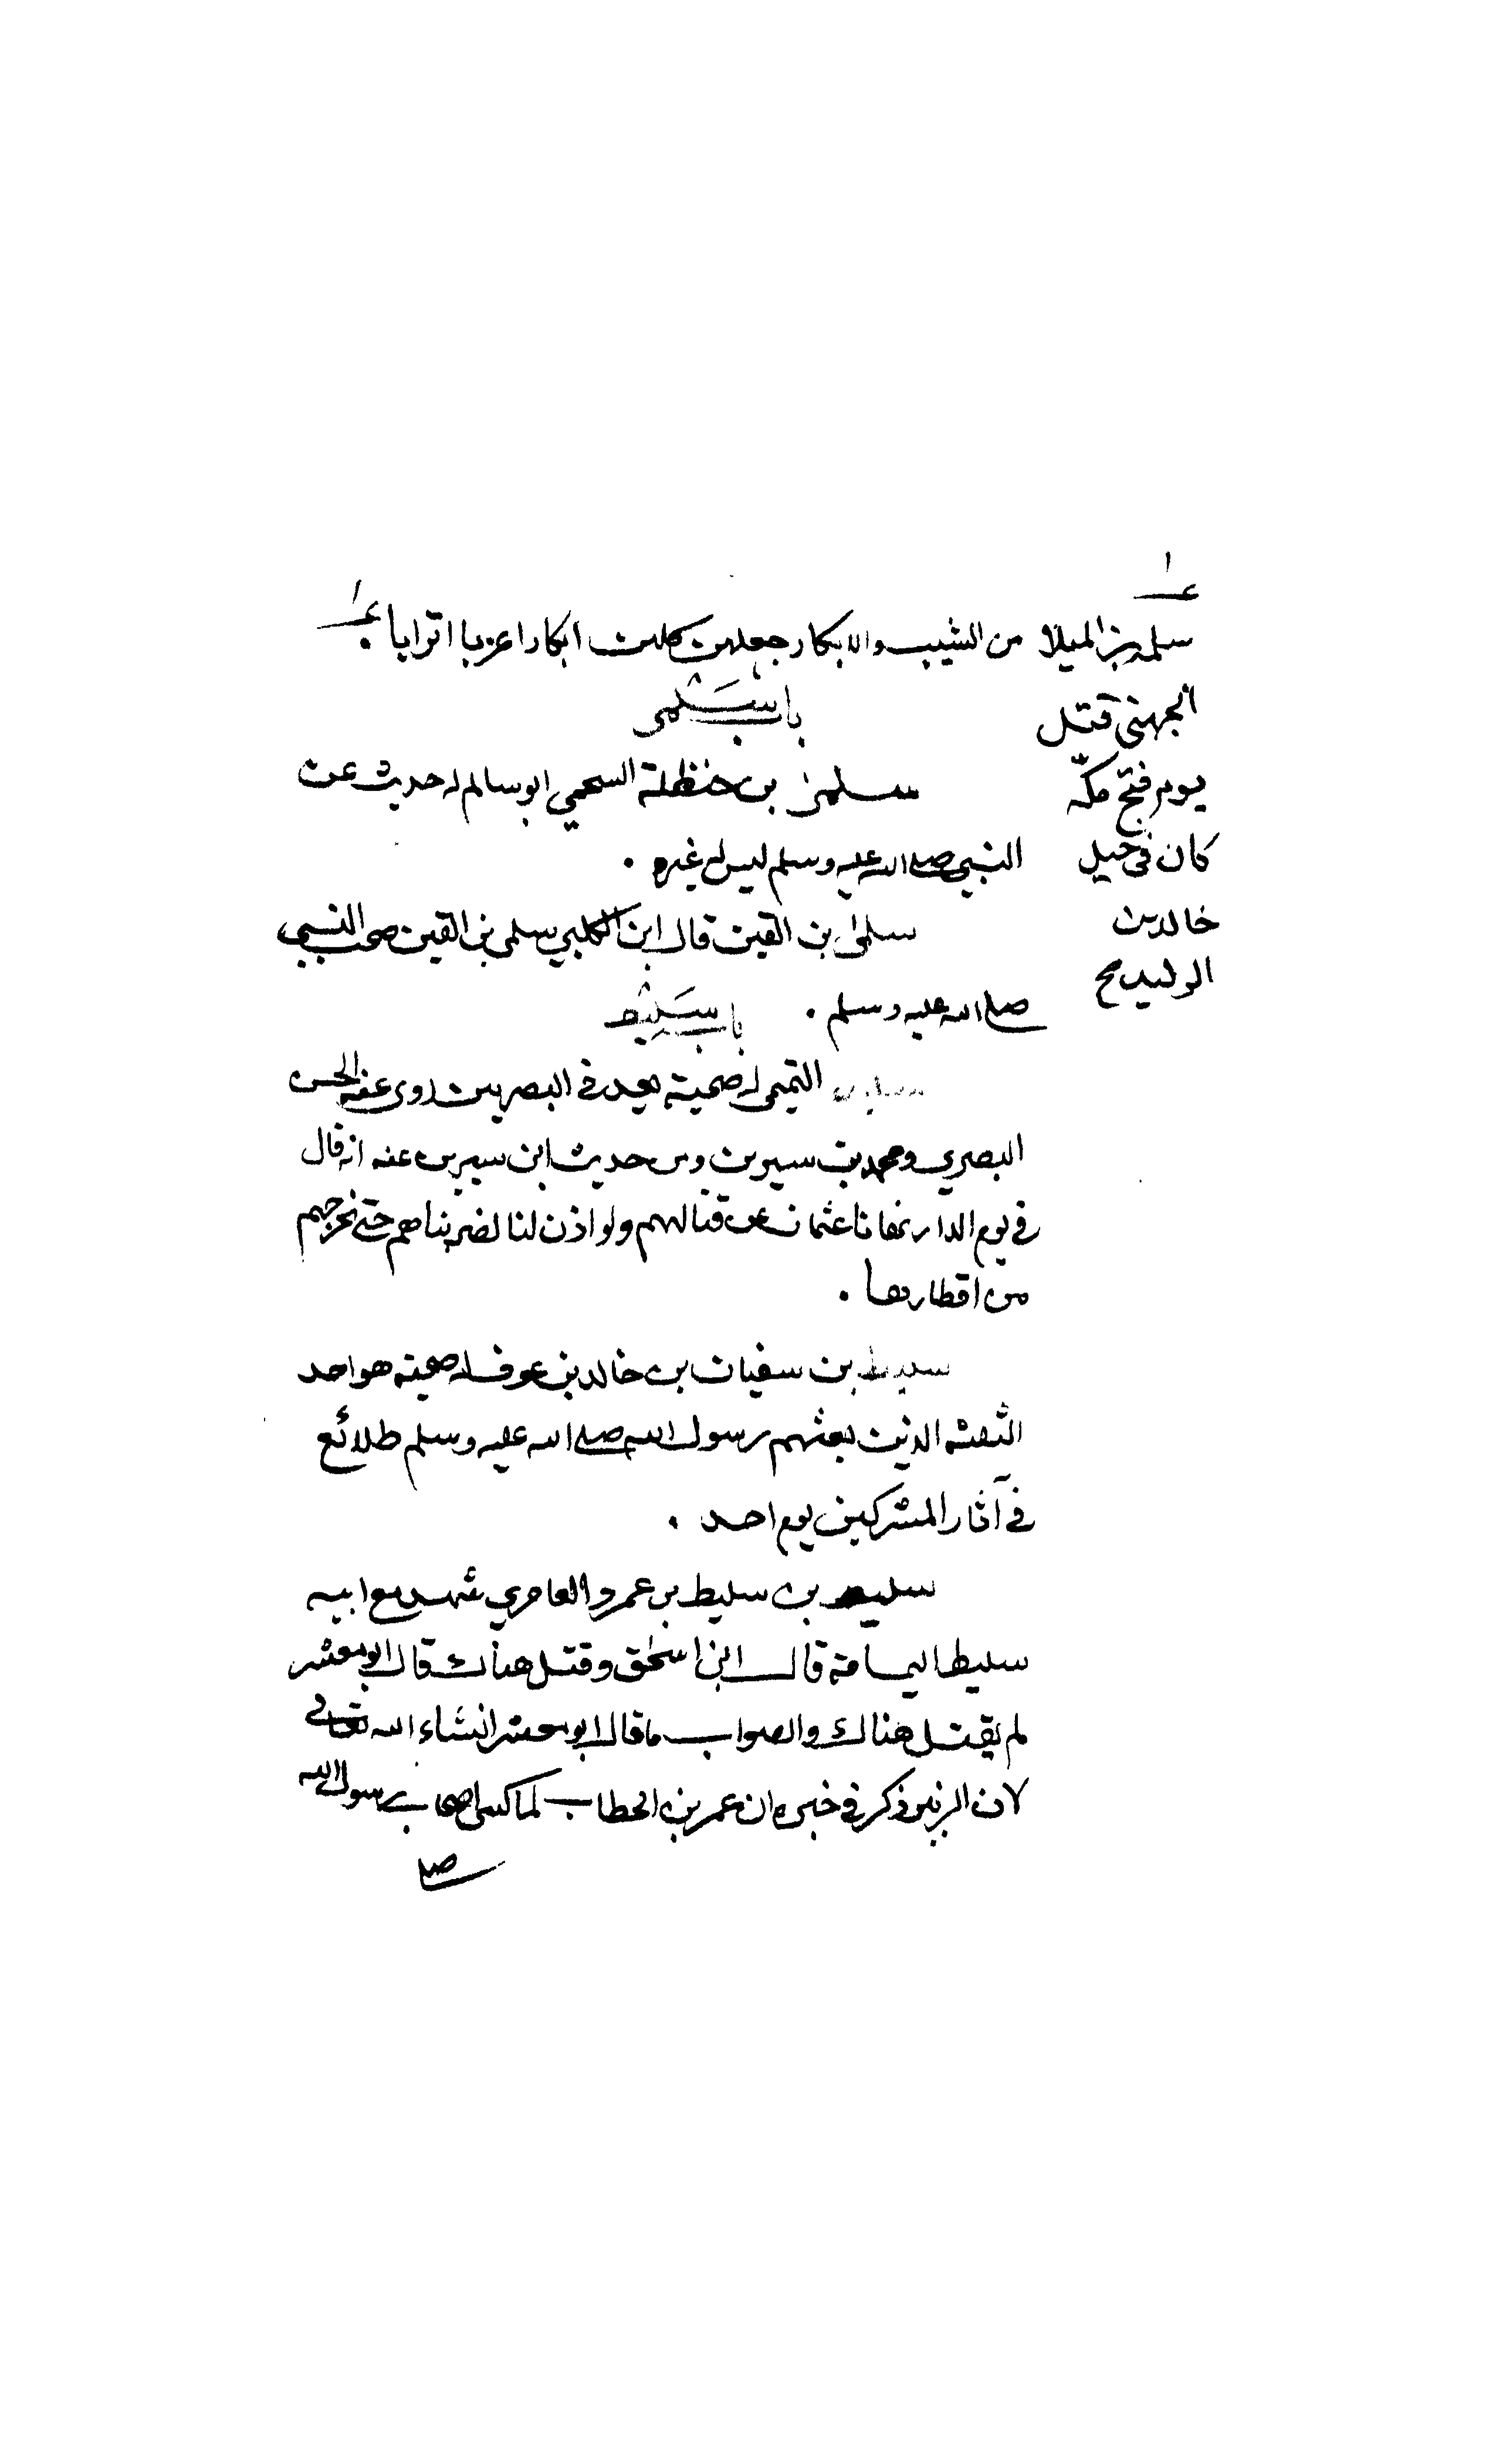 من الثيب والابكار جعلهن كلهن ابكارا عربا اترابا
باب سلمى
سلمى بن حنظلة السحيمي ابو سالم له حديث عن
النبي صلى الله عليه وسلم ليس له غيره .
سلمى بن القين قال ابن الكلبي سلمى بن القين صحب النبي
صلى الله عليه وسلم .
باب سليط
سليط التميمي له صحبة يعد في البصريين روى عنه الحسن
البصري ومحمد بن سيرين ومن حديث ابن سيرين عنه انه قال
في يوم الدار نهانا عثمان عن قتالهم ولو اذن لنا لضربناهم حتى نخرجهم
من اقطارها .
سليط بن سفيان بن خالد بن عوف له صحبة هو احد
الثلثة الذين بعثهم رسول الله صلى الله عليه وسلم طلائع
في آثار المشركين يوم احد .
سليط بن سليط بن عمرو العامري شهد مع ابيه
سليط اليمامة قال ابن اسحق وقتل هناك قال ابو معشر
لم يقتل هناك والصواب ما قال ابو معشر انشاء الله تعالى
لان الزبير ذكر في خبره ان عمر بن الخطاب لما كسى اصحاب رسول الله
صلى
سلمة بن الميلا
الجهني قتل
يوم فتح مكة
كان في خيل
خالد بن
الوليد صح